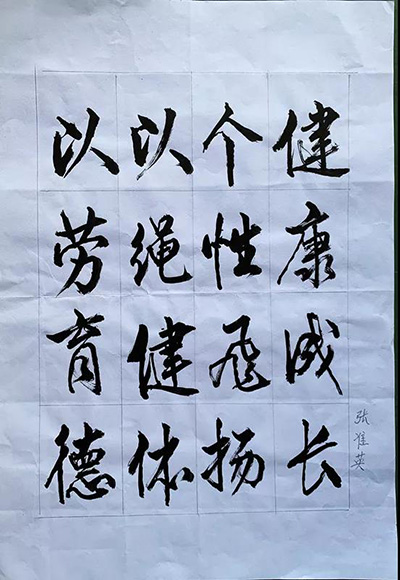 健康成长
个性飞扬
以绳健体
以劳育德